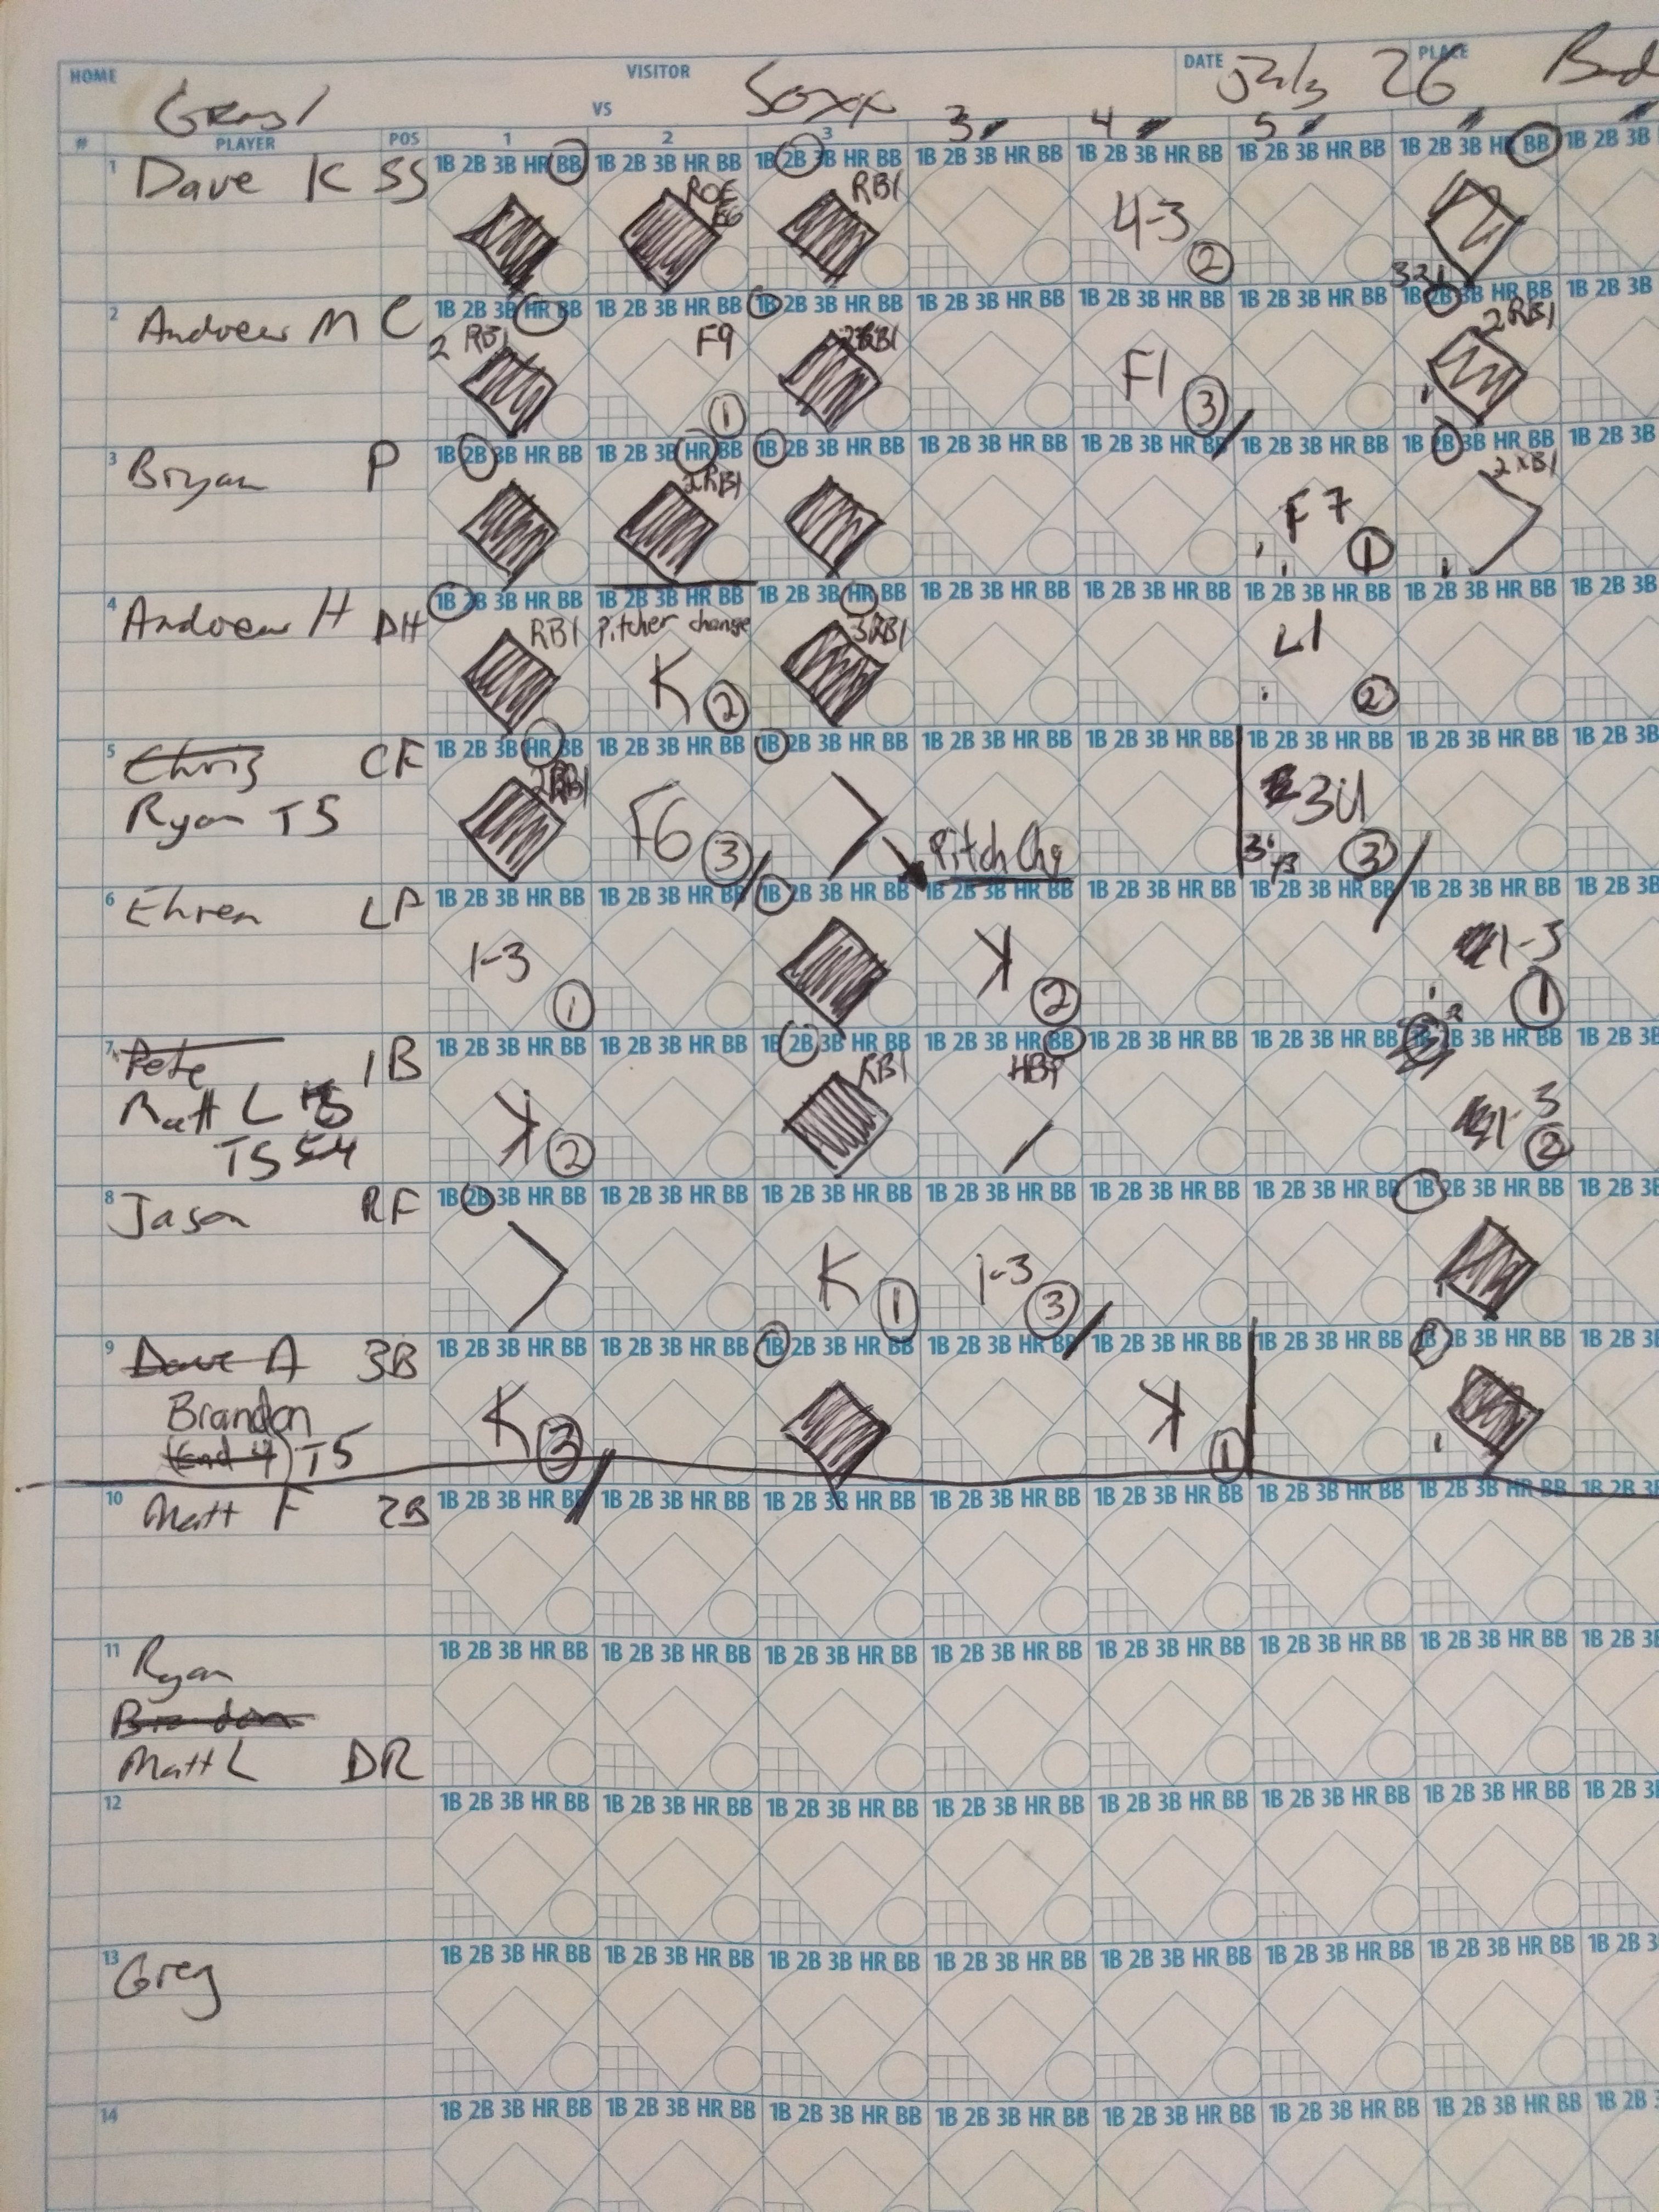 HOME VISITOR DATE PLACE
VS Soxx July 26
3 4 5
# PLAYER POS 1 2 3
1 Dave K SS 1B 2B 3B HR BB 1B 2B 3B HR BB 1B 2B 3B HR BB 1B 2B 3B HR BB 1B 2B 3B HR BB 1B 2B 3B HR BB 1B 2B 3B HR BB 1B 2B 3B
ROE E6 RBI 4-3 2
2 Andrew M C 1B 2B 3B HR BB 1B 2B 3B HR BB 1B 2B 3B HR BB 1B 2B 3B HR BB 1B 2B 3B HR BB 1B 2B 3B HR BB 1B 2B 3B HR BB 1B 2B 3B
2 RBI F9 1 2RBI F1 3 2RBI
3 Bryan P 1B 2B 3B HR BB 1B 2B 3B HR BB 1B 2B 3B HR BB 1B 2B 3B HR BB 1B 2B 3B HR BB 1B 2B 3B HR BB 1B 2B 3B HR BB 1B 2B 3B
2RBI F7 1 2RBI
4 Andrew H DH 1B 2B 3B HR BB 1B 2B 3B HR BB 1B 2B 3B HR BB 1B 2B 3B HR BB 1B 2B 3B HR BB 1B 2B 3B HR BB 1B 2B 3B HR BB 1B 2B 3B
RBI Pitcher change K 2 3RBI L1 2
5 Chris CF 1B 2B 3B HR BB 1B 2B 3B HR BB 1B 2B 3B HR BB 1B 2B 3B HR BB 1B 2B 3B HR BB 1B 2B 3B HR BB 1B 2B 3B HR BB 1B 2B 3B
Ryan T5 2RBI F6 3 Pitch Chg 3U 3
6 Ehren LF 1B 2B 3B HR BB 1B 2B 3B HR BB 1B 2B 3B HR BB 1B 2B 3B HR BB 1B 2B 3B HR BB 1B 2B 3B HR BB 1B 2B 3B HR BB 1B 2B 3B
1-3 1 K 2 1-3 1
7 Pete 1B 1B 2B 3B HR BB 1B 2B 3B HR BB 1B 2B 3B HR BB 1B 2B 3B HR BB 1B 2B 3B HR BB 1B 2B 3B HR BB 1B 2B 3B HR BB 1B 2B 3B
Matt L K 2 RBI HBP 1-3 2
T5
8 Jason RF 1B 2B 3B HR BB 1B 2B 3B HR BB 1B 2B 3B HR BB 1B 2B 3B HR BB 1B 2B 3B HR BB 1B 2B 3B HR BB 1B 2B 3B HR BB 1B 2B 3B
K 1 1-3 3
9 Dave A 3B 1B 2B 3B HR BB 1B 2B 3B HR BB 1B 2B 3B HR BB 1B 2B 3B HR BB 1B 2B 3B HR BB 1B 2B 3B HR BB 1B 2B 3B HR BB 1B 2B 3B
Brandon K 3 K 1
(End 4) T5
10 Matt F 2B 1B 2B 3B HR BB 1B 2B 3B HR BB 1B 2B 3B HR BB 1B 2B 3B HR BB 1B 2B 3B HR BB 1B 2B 3B HR BB 1B 2B 3B HR BB 1B 2B 3B
11 Ryan 1B 2B 3B HR BB 1B 2B 3B HR BB 1B 2B 3B HR BB 1B 2B 3B HR BB 1B 2B 3B HR BB 1B 2B 3B HR BB 1B 2B 3B HR BB 1B 2B 3B
Brandon
Matt L DR
12 1B 2B 3B HR BB 1B 2B 3B HR BB 1B 2B 3B HR BB 1B 2B 3B HR BB 1B 2B 3B HR BB 1B 2B 3B HR BB 1B 2B 3B HR BB 1B 2B 3B
13 Greg 1B 2B 3B HR BB 1B 2B 3B HR BB 1B 2B 3B HR BB 1B 2B 3B HR BB 1B 2B 3B HR BB 1B 2B 3B HR BB 1B 2B 3B HR BB 1B 2B 3
14 1B 2B 3B HR BB 1B 2B 3B HR BB 1B 2B 3B HR BB 1B 2B 3B HR BB 1B 2B 3B HR BB 1B 2B 3B HR BB 1B 2B 3B HR BB 1B 2B 3